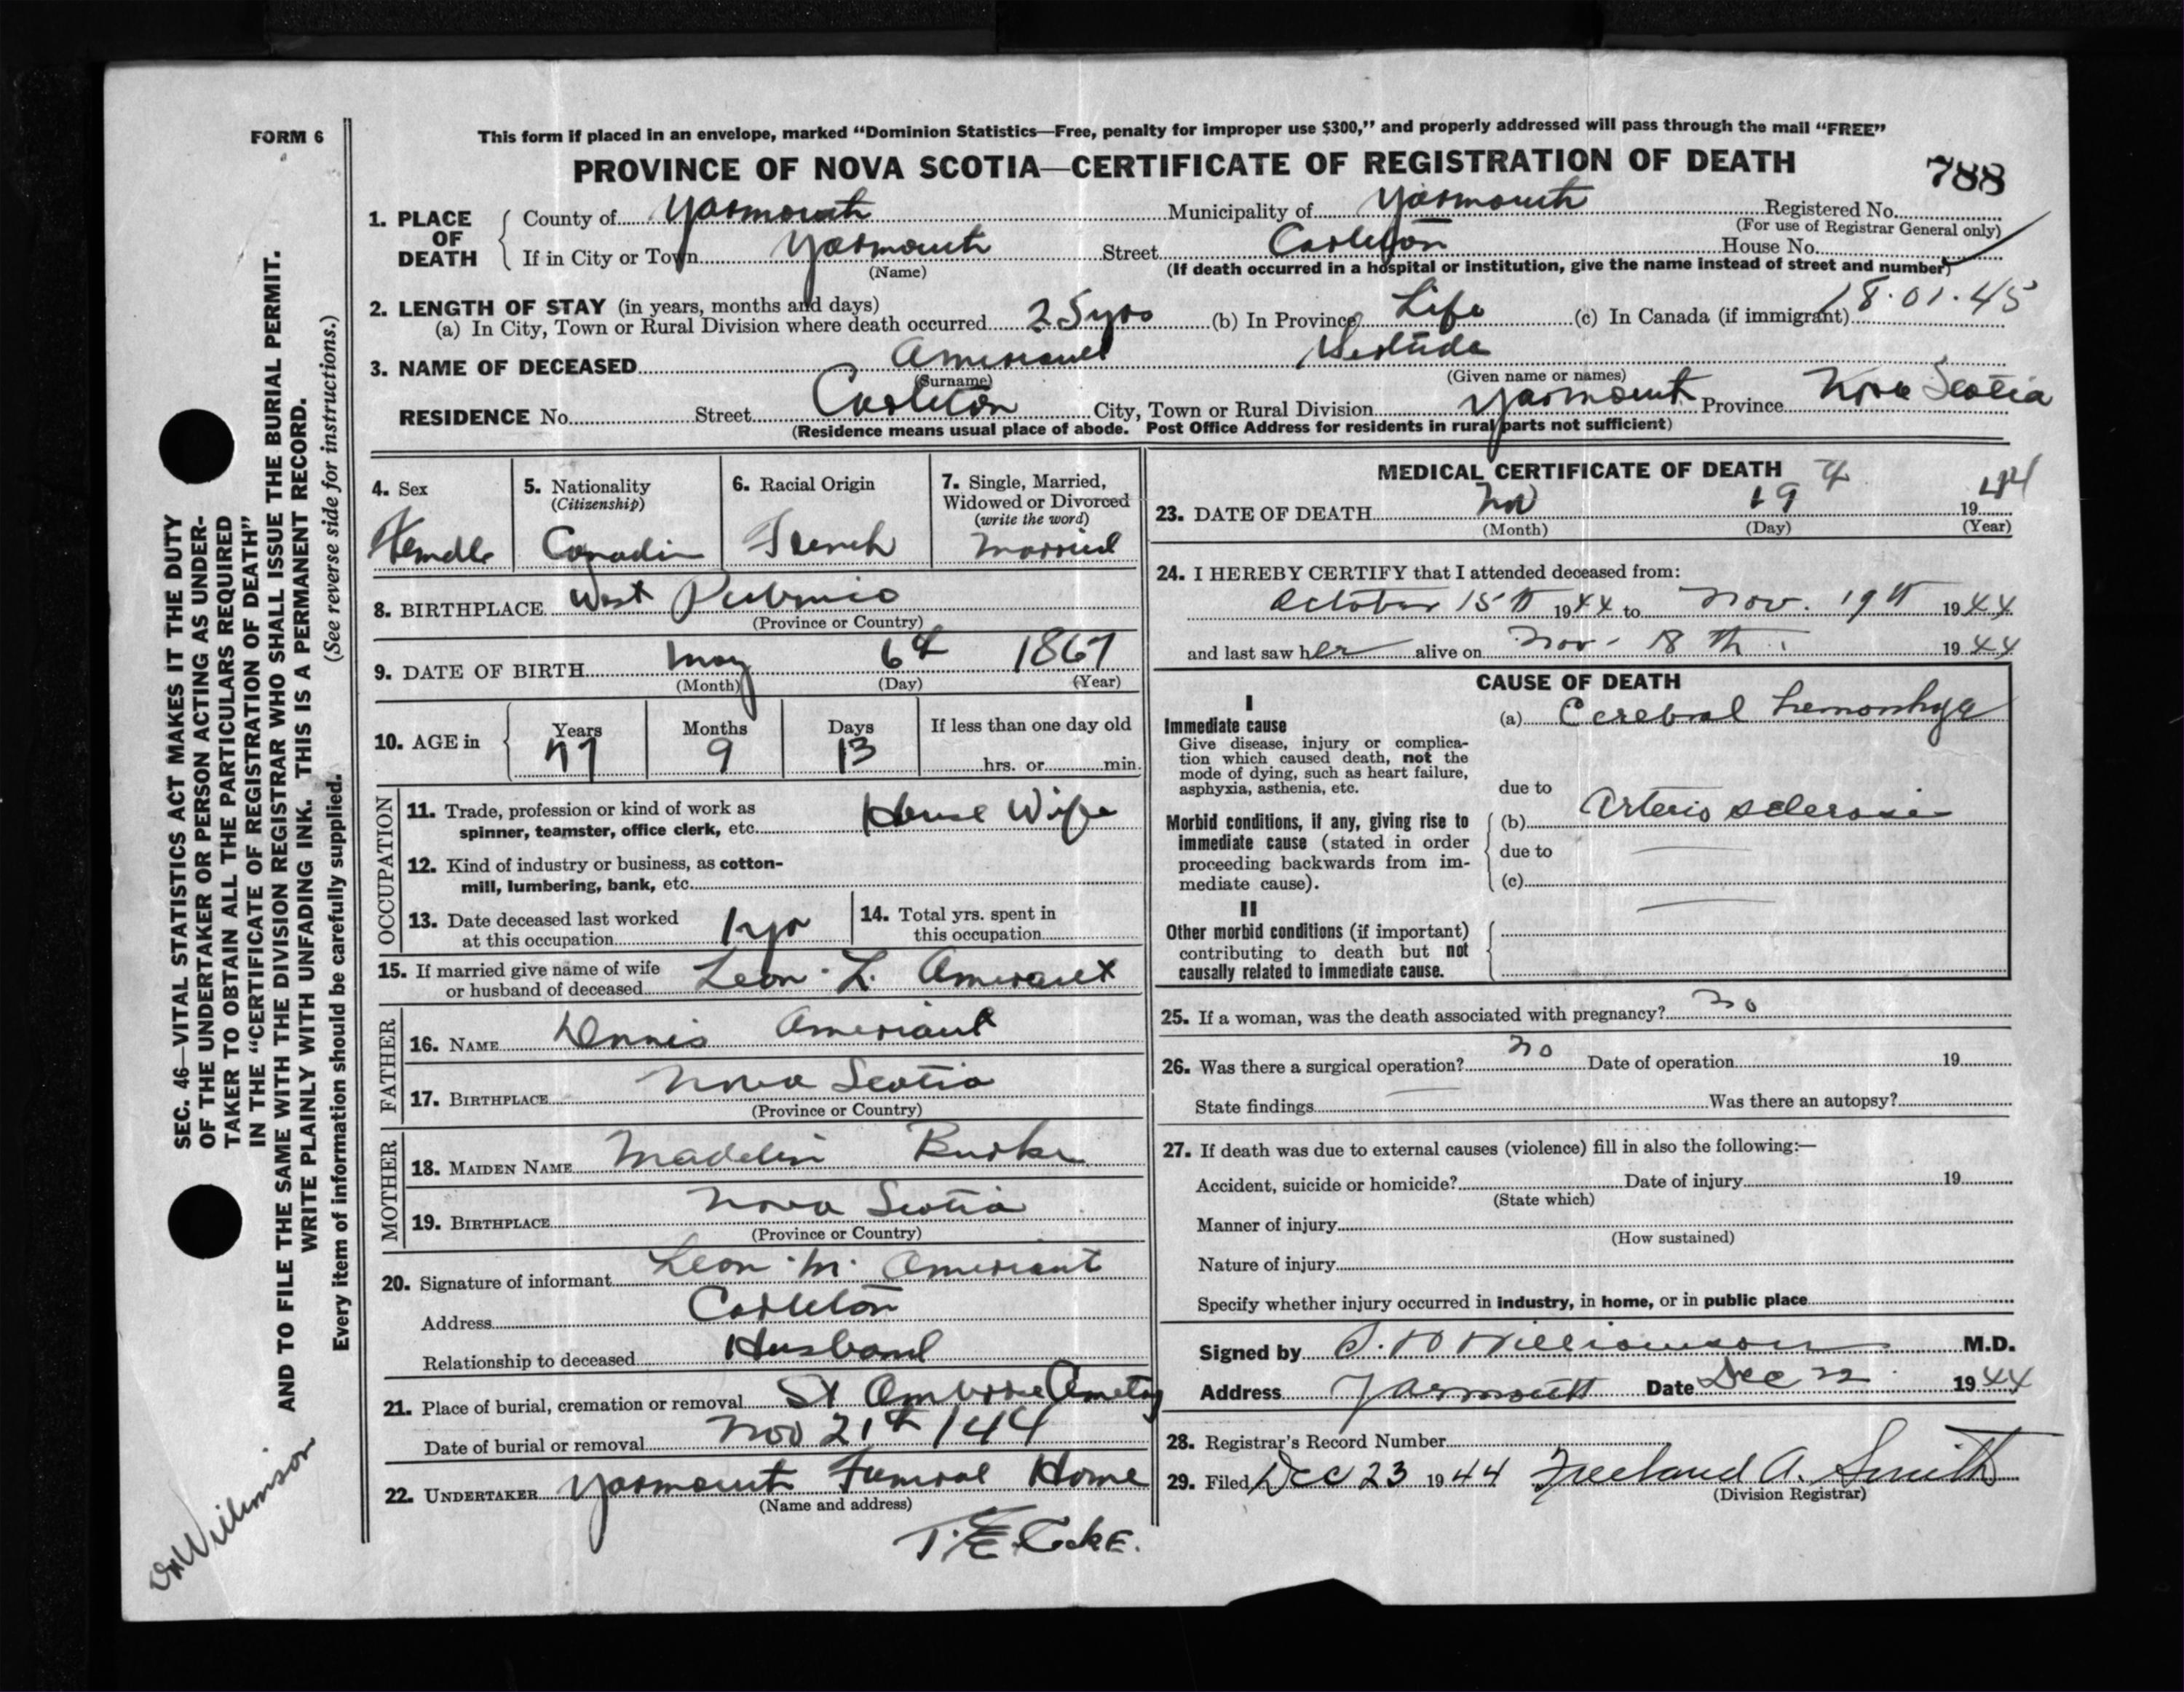 FORM 6
This form if placed in an envelope, marked “Dominion Statistics—Free, penalty for improper use $300,” and properly addressed will pass through the mail “FREE”
PROVINCE OF NOVA SCOTIA—CERTIFICATE OF REGISTRATION OF DEATH
788
1. PLACE OF DEATH County of Yarmouth Municipality of Yarmouth Registered No.
(For use of Registrar General only)
If in City or Town Yarmouth Street Carleton House No.
(Name) (If death occurred in a hospital or institution, give the name instead of street and number)
2. LENGTH OF STAY (in years, months and days)
18.01.45
(a) In City, Town or Rural Division where death occurred 25 yrs (b) In Province Life (c) In Canada (if immigrant)
3. NAME OF DECEASED
(Surname) (Given name or names)
RESIDENCE No. Street Carleton City, Town or Rural Division Yarmouth Province Nova Scotia
(Residence means usual place of abode. Post Office Address for residents in rural parts not sufficient)
4. Sex
Female
5. Nationality
(Citizenship)
Canadin
6. Racial Origin
French
7. Single, Married,
Widowed or Divorced
(write the word)
Married
8. BIRTHPLACE West Pubnico
(Province or Country)
9. DATE OF BIRTH May 6th 1867
(Month) (Day) (Year)
10. AGE in Years Months Days If less than one day old
77 9 13 hrs. or min.
OCCUPATION
11. Trade, profession or kind of work as
spinner, teamster, office clerk, etc. House Wife
12. Kind of industry or business, as cotton-
mill, lumbering, bank, etc.
13. Date deceased last worked
at this occupation 1 yr
14. Total yrs. spent in
this occupation
15. If married give name of wife
or husband of deceased Leon L. Amirault
FATHER
16. NAME Dennis Ameriault
17. BIRTHPLACE Nova Scotia
(Province or Country)
MOTHER
18. MAIDEN NAME Madelin Burke
19. BIRTHPLACE Nova Scotia
(Province or Country)
20. Signature of informant Leon M.
Address Carleton
Relationship to deceased Husband
21. Place of burial, cremation or removal St Ambrose Cemetery
Date of burial or removal Nov 21st /44
22. UNDERTAKER Yarmouth Funeral Home
(Name and address)
MEDICAL CERTIFICATE OF DEATH
23. DATE OF DEATH Nov 19th 1944
(Month) (Day) (Year)
24. I HEREBY CERTIFY that I attended deceased from:
October 15th 1944 to Nov. 19th 1944
and last saw her alive on Nov. 18th 1944
CAUSE OF DEATH
I
Immediate cause
Give disease, injury or complica-
tion which caused death, not the
mode of dying, such as heart failure,
asphyxia, asthenia, etc.
(a) Cerebral hemorrhage
due to
Morbid conditions, if any, giving rise to
immediate cause (stated in order
proceeding backwards from im-
mediate cause).
(b) Arterio sclerosis
due to
(c)
II
Other morbid conditions (if important)
contributing to death but not
causally related to immediate cause.
25. If a woman, was the death associated with pregnancy? No
26. Was there a surgical operation? No Date of operation 19
State findings Was there an autopsy?
27. If death was due to external causes (violence) fill in also the following:—
Accident, suicide or homicide? Date of injury 19
(State which)
Manner of injury
(How sustained)
Nature of injury
Specify whether injury occurred in industry, in home, or in public place
Signed by Williamson M.D.
Address Yarmouth Date Dec 22 1944
28. Registrar’s Record Number
29. Filed Dec 23 1944 Freeland A. Smith
(Division Registrar)
SEC. 46—VITAL STATISTICS ACT MAKES IT THE DUTY
OF THE UNDERTAKER OR PERSON ACTING AS UNDER-
TAKER TO OBTAIN ALL THE PARTICULARS REQUIRED
IN THE “CERTIFICATE OF REGISTRATION OF DEATH”
AND TO FILE THE SAME WITH THE DIVISION REGISTRAR WHO SHALL ISSUE THE BURIAL PERMIT.
WRITE PLAINLY WITH UNFADING INK. THIS IS A PERMANENT RECORD.
Every item of information should be carefully supplied. (See reverse side for instructions.)